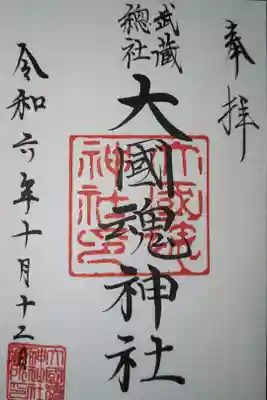 奉拝
武蔵
總社
大國魂神社
令和六年十月十二日
大國魂
神社印